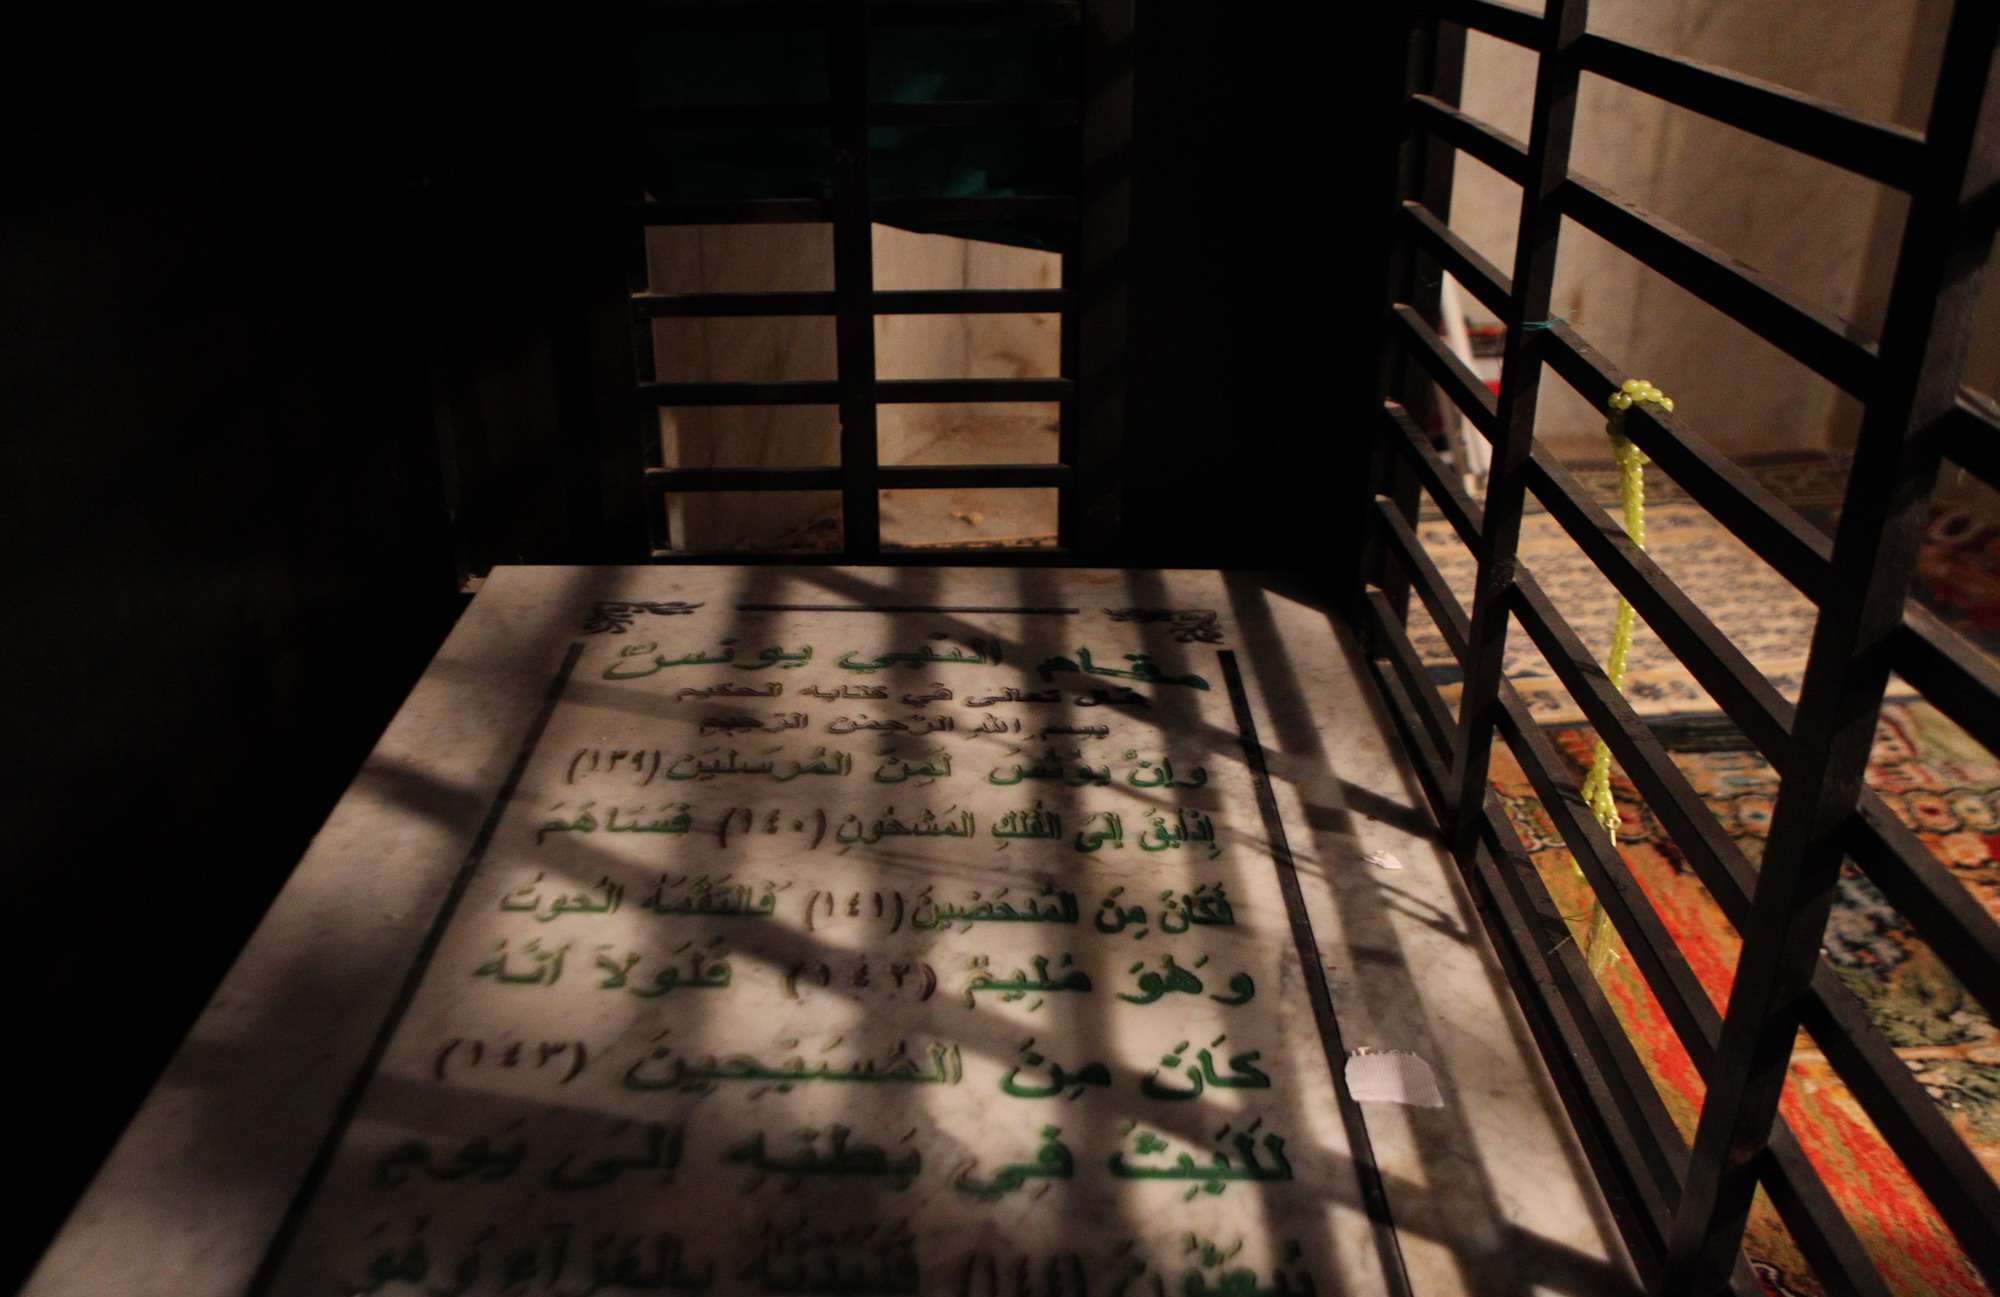 مقام النبي يونس
قال تعالى في كتابه الحكيم
بسم الله الرّحمن الرّحيم
وإنَّ يونُسَ لَمِنَ المُرسَلينَ (١٣٩)
إذأبقَ إلىَ الفُلكِ المَشحُونِ (١٤٠) فَسَاهَمَ
فَكَانَ مِنَ المُدحَضِينَ (١٤١) فَالتَقَمَهُ الحُوتُ
وَهُوَ مُلِيمٌ (١٤٢) فَلَولاَ أنَّهُ
كَانَ مِنَ المُسَبِّحِينَ (١٤٣)
لَلَبِثَ فِي بَطنِهِ إلىَ يَومِ
يُبعَثُونَ (١٤٤) فَنَبَذنَاهُ بِالعَرَاءِ وَهُوَ